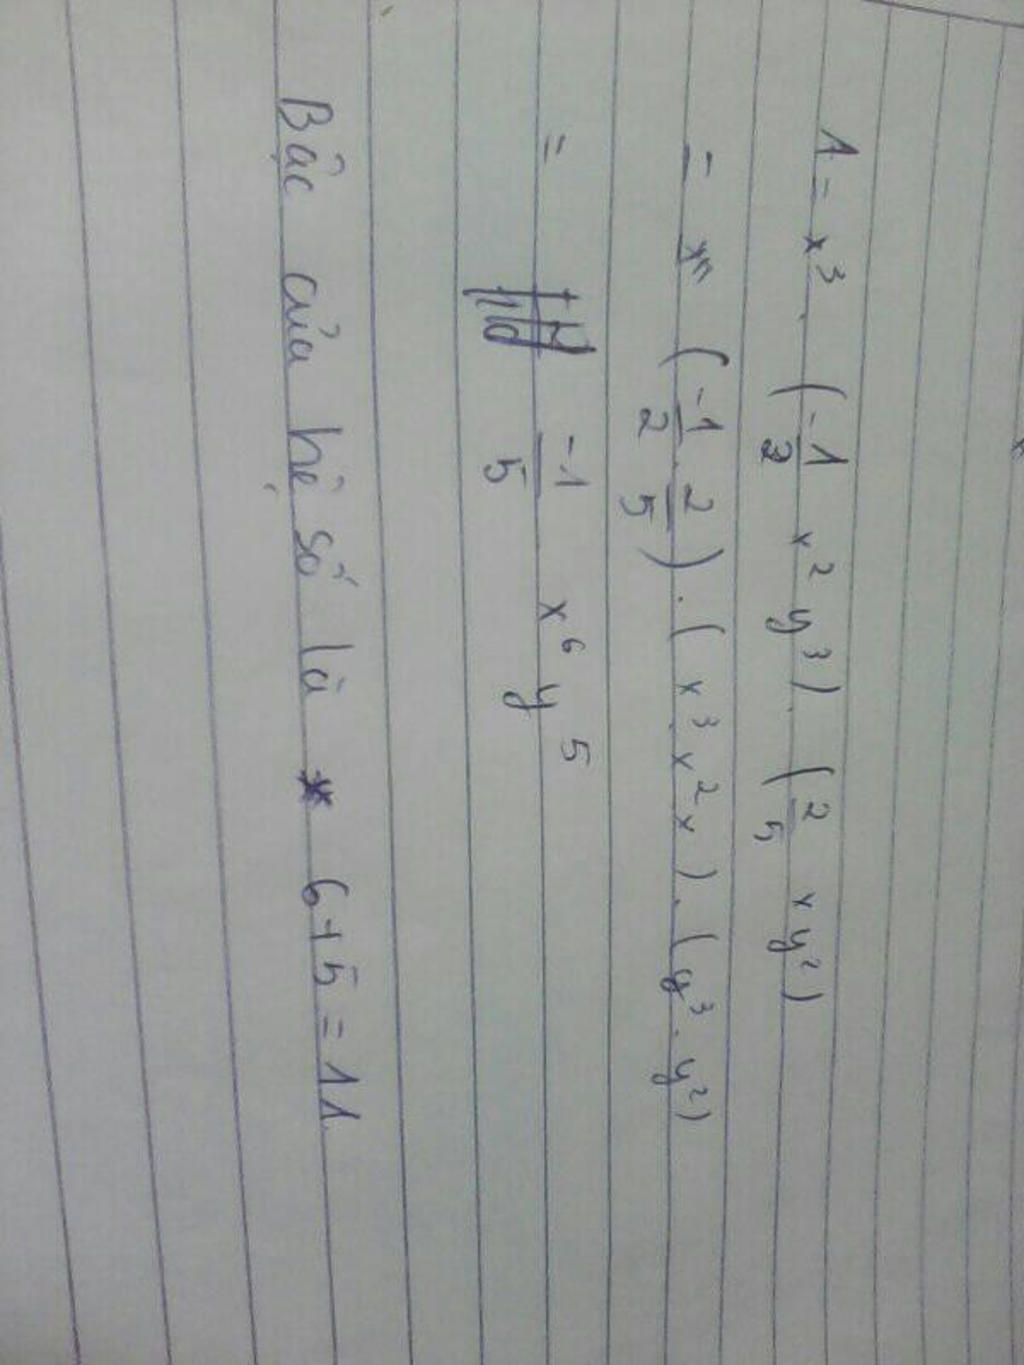 1 = x³ . (-1/2 x² y³) . (2/5 x y²)
= (-1/2 . 2/5) . (x³ . x² x) . (y³ . y²)
= -1/5 x⁶ y⁵
Bậc của hệ số là 6+5=11